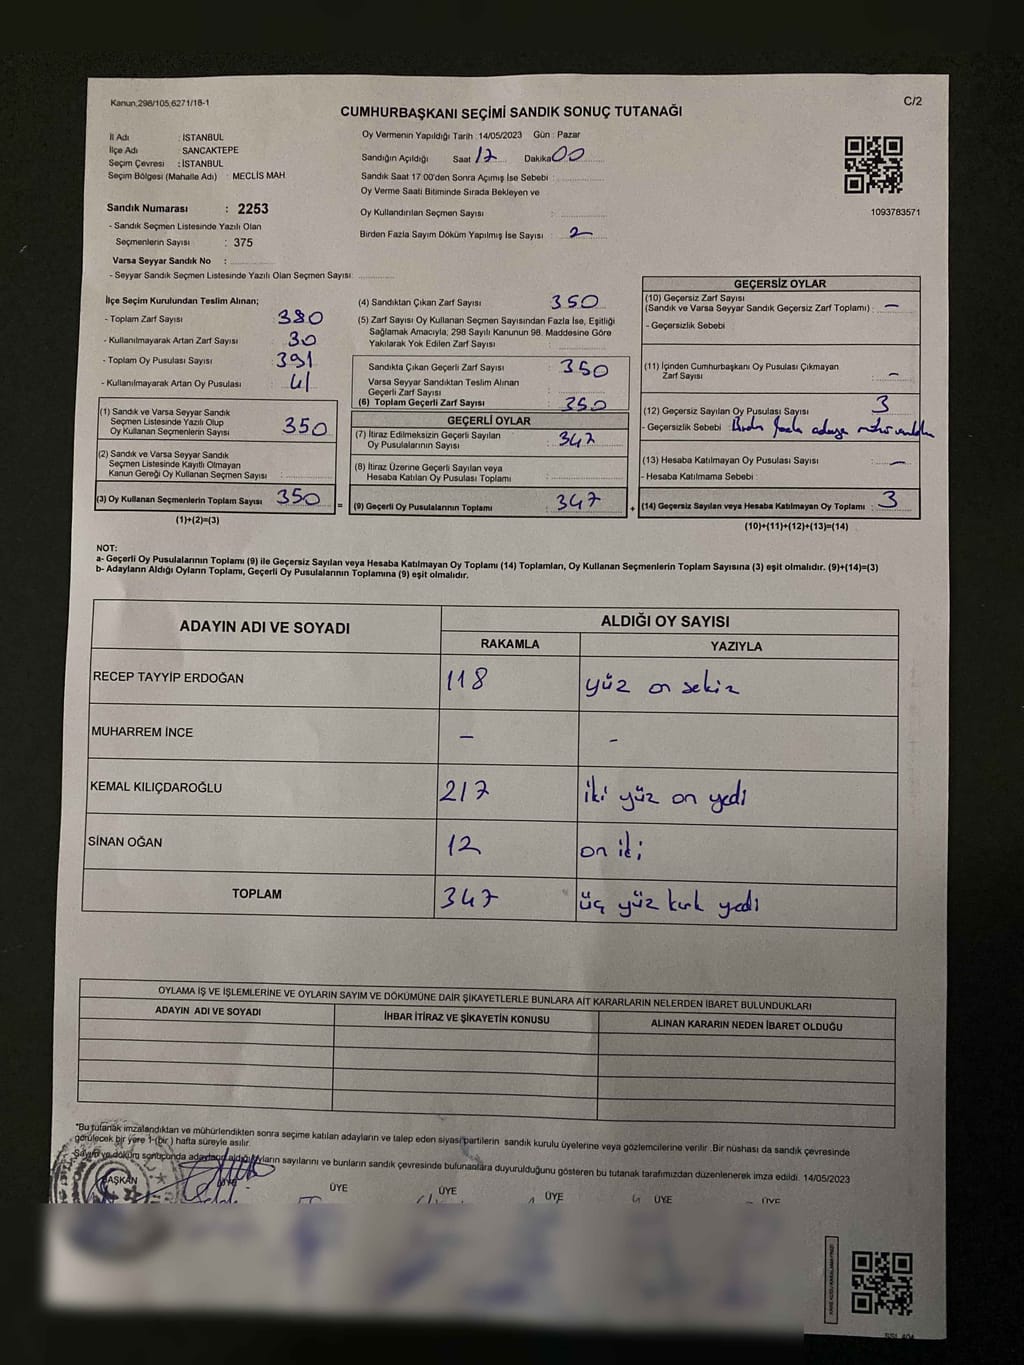 Kanun,298/105,6271/18-1
C/2
CUMHURBAŞKANI SEÇİMİ SANDIK SONUÇ TUTANAĞI
İl Adı : İSTANBUL
İlçe Adı : SANCAKTEPE
Seçim Çevresi : İSTANBUL
Seçim Bölgesi (Mahalle Adı) : MECLİS MAH
Sandık Numarası : 2253
- Sandık Seçmen Listesinde Yazılı Olan
Seçmenlerin Sayısı : 375
Varsa Seyyar Sandık No :
- Seyyar Sandık Seçmen Listesinde Yazılı Olan Seçmen Sayısı:
Oy Vermenin Yapıldığı Tarih :14/05/2023 Gün : Pazar
Sandığın Açıldığı Saat 17 Dakika 00
Sandık Saat 17:00'den Sonra Açımış İse Sebebi :
Oy Verme Saati Bitiminde Sırada Bekleyen ve
Oy Kullandırılan Seçmen Sayısı :
Birden Fazla Sayım Döküm Yapılmış İse Sayısı : 2
1093783571
İlçe Seçim Kurulundan Teslim Alınan;
- Toplam Zarf Sayısı : 380
- Kullanılmayarak Artan Zarf Sayısı : 30
- Toplam Oy Pusulası Sayısı : 391
- Kullanılmayarak Artan Oy Pusulası : 41
(1) Sandık ve Varsa Seyyar Sandık
Seçmen Listesinde Yazılı Olup
Oy Kullanan Seçmenlerin Sayısı : 350
(2) Sandık ve Varsa Seyyar Sandık
Seçmen Listesinde Kayıtlı Olmayan
Kanun Gereği Oy Kullanan Seçmen Sayısı :
(3) Oy Kullanan Seçmenlerin Toplam Sayısı : 350 =
(1)+(2)=(3)
(4) Sandıktan Çıkan Zarf Sayısı : 350
(5) Zarf Sayısı Oy Kullanan Seçmen Sayısından Fazla İse, Eşitliği
Sağlamak Amacıyla; 298 Sayılı Kanunun 98. Maddesine Göre
Yakılarak Yok Edilen Zarf Sayısı :
Sandıkta Çıkan Geçerli Zarf Sayısı : 350
Varsa Seyyar Sandıktan Teslim Alınan
Geçerli Zarf Sayısı :
(6) Toplam Geçerli Zarf Sayısı : 350
GEÇERLİ OYLAR
(7) İtiraz Edilmeksizin Geçerli Sayılan
Oy Pusulalarının Sayısı : 347
(8) İtiraz Üzerine Geçerli Sayılan veya
Hesaba Katılan Oy Pusulası Toplamı :
(9) Geçerli Oy Pusulalarının Toplamı : 347 +
GEÇERSİZ OYLAR
(10) Geçersiz Zarf Sayısı
(Sandık ve Varsa Seyyar Sandık Geçersiz Zarf Toplamı) : –
- Geçersizlik Sebebi
(11) İçinden Cumhurbaşkanı Oy Pusulası Çıkmayan
Zarf Sayısı : –
(12) Geçersiz Sayılan Oy Pusulası Sayısı : 3
- Geçersizlik Sebebi Birden fazla adaya mühür
(13) Hesaba Katılmayan Oy Pusulası Sayısı : –
- Hesaba Katılmama Sebebi
(14) Geçersiz Sayılan veya Hesaba Katılmayan Oy Toplamı : 3
(10)+(11)+(12)+(13)=(14)
NOT:
a- Geçerli Oy Pusulalarının Toplamı (9) ile Geçersiz Sayılan veya Hesaba Katılmayan Oy Toplamı (14) Toplamları, Oy Kullanan Seçmenlerin Toplam Sayısına (3) eşit olmalıdır. (9)+(14)=(3)
b- Adayların Aldığı Oyların Toplamı, Geçerli Oy Pusulalarının Toplamına (9) eşit olmalıdır.
ADAYIN ADI VE SOYADI
ALDIĞI OY SAYISI
RAKAMLA YAZIYLA
RECEP TAYYİP ERDOĞAN 118 yüz on sekiz
MUHARREM İNCE – -
KEMAL KILIÇDAROĞLU 217 iki yüz on yedi
SİNAN OĞAN 12 on iki
TOPLAM 347 üç yüz kırk yedi
OYLAMA İŞ VE İŞLEMLERİNE VE OYLARIN SAYIM VE DÖKÜMÜNE DAİR ŞİKAYETLERLE BUNLARA AİT KARARLARIN NELERDEN İBARET BULUNDUKLARI
ADAYIN ADI VE SOYADI İHBAR İTİRAZ VE ŞİKAYETİN KONUSU ALINAN KARARIN NEDEN İBARET OLDUĞU
"Bu tutanak imzalandıktan ve mühürlendikten sonra seçime katılan adayların ve talep eden siyasi partilerin sandık kurulu üyelerine veya gözlemcilerine verilir. Bir nüshası da sandık çevresinde
görülecek bir yere 1-(bir ) hafta süreyle asılır.
Sayım ve döküm sonucunda adayların aldığı oyların sayılarını ve bunların sandık çevresinde bulunanlara duyurulduğunu gösteren bu tutanak tarafımızdan düzenlenerek imza edildi. 14/05/2023
BAŞKAN ÜYE ÜYE ÜYE ÜYE ÜYE ÜYE